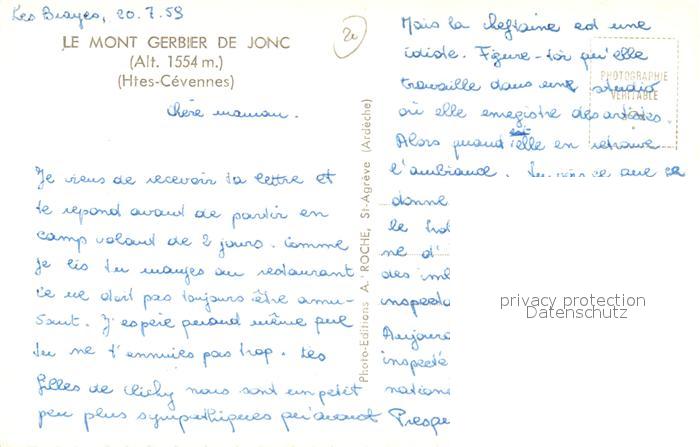 Les Brayes, 20.7.59
LE MONT GERBIER DE JONC
(Alt. 1554 m.)
(Htes-Cévennes)
chère maman.
Je viens de recevoir ta lettre et
te répond avant de partir en
camp volant de 2 jours. Comme
je lis tu manges au restaurant
ce ne doit pas toujours être amu-
sant. J'espère quand même que
tu ne t'ennuies pas trop. Les
filles de Clichy nous sont un petit
peu plus sympathiques qu'avant
Photo-Editions A. ROCHE, St-Agrève (Ardèche)
2e
Mais la cheftaine est une
idiote. Figure-toi qu'elle
travaille dans un studio
où elle enregistre des artistes.
Alors quand elle en retrouve
l'ambiance. Tu vois ce que ça
donne
le
ne d'
des
inspecte
Aujourd
inspecté
nation
Presqu
PHOTOGRAPHIE
VÉRITABLE
privacy protection
Datenschutz